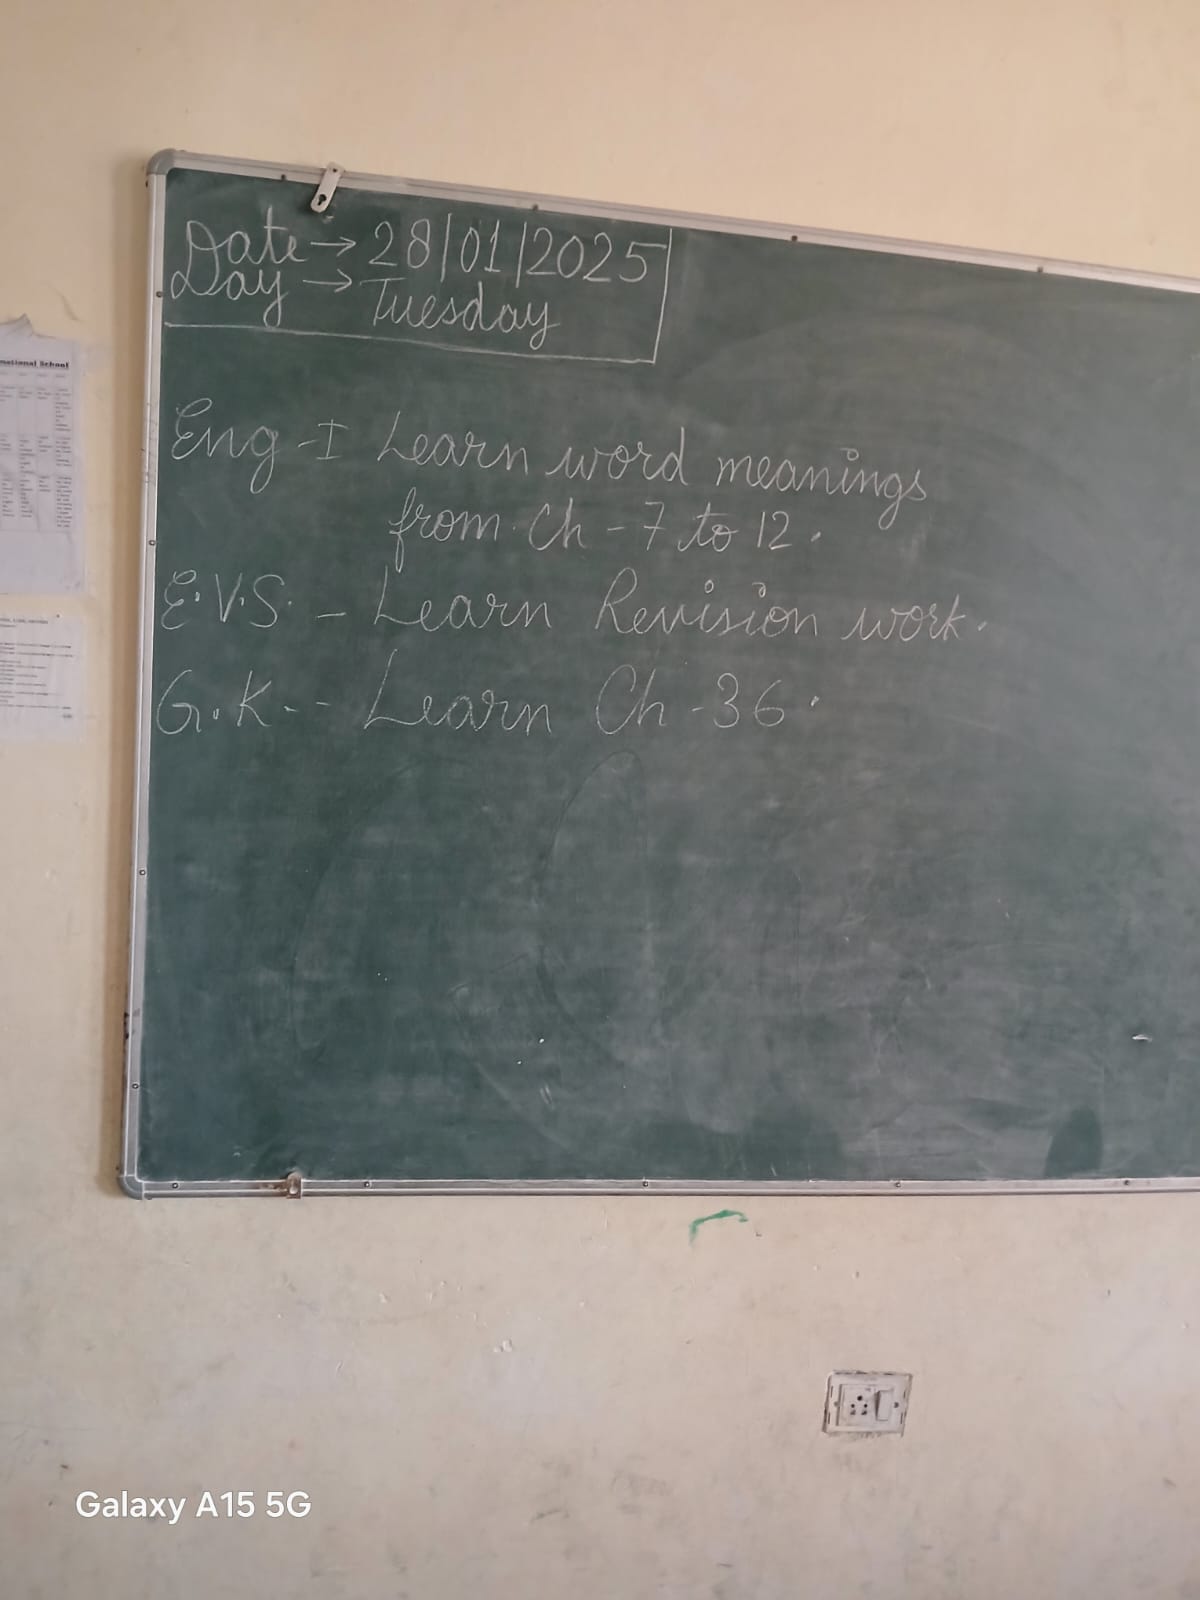 Date → 28/01/2025
Day → Tuesday
Eng - I Learn word meanings
from Ch - 7 to 12.
E.V.S. - Learn Revision work.
G.K. - Learn Ch - 36.
national School
Galaxy A15 5G